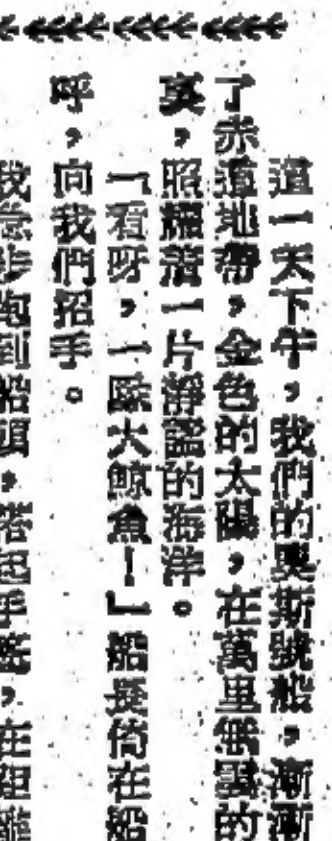 這一天下午，我們的奧斯號船，漸漸
了赤道地帶，金色的太陽，在萬里無雲的
裏，照耀着一片靜謐的海洋。
「看呀，一隻大鯨魚！」船長倚在船
呼，向我們招手。
我急步跑到船頭，搭起手，在距離